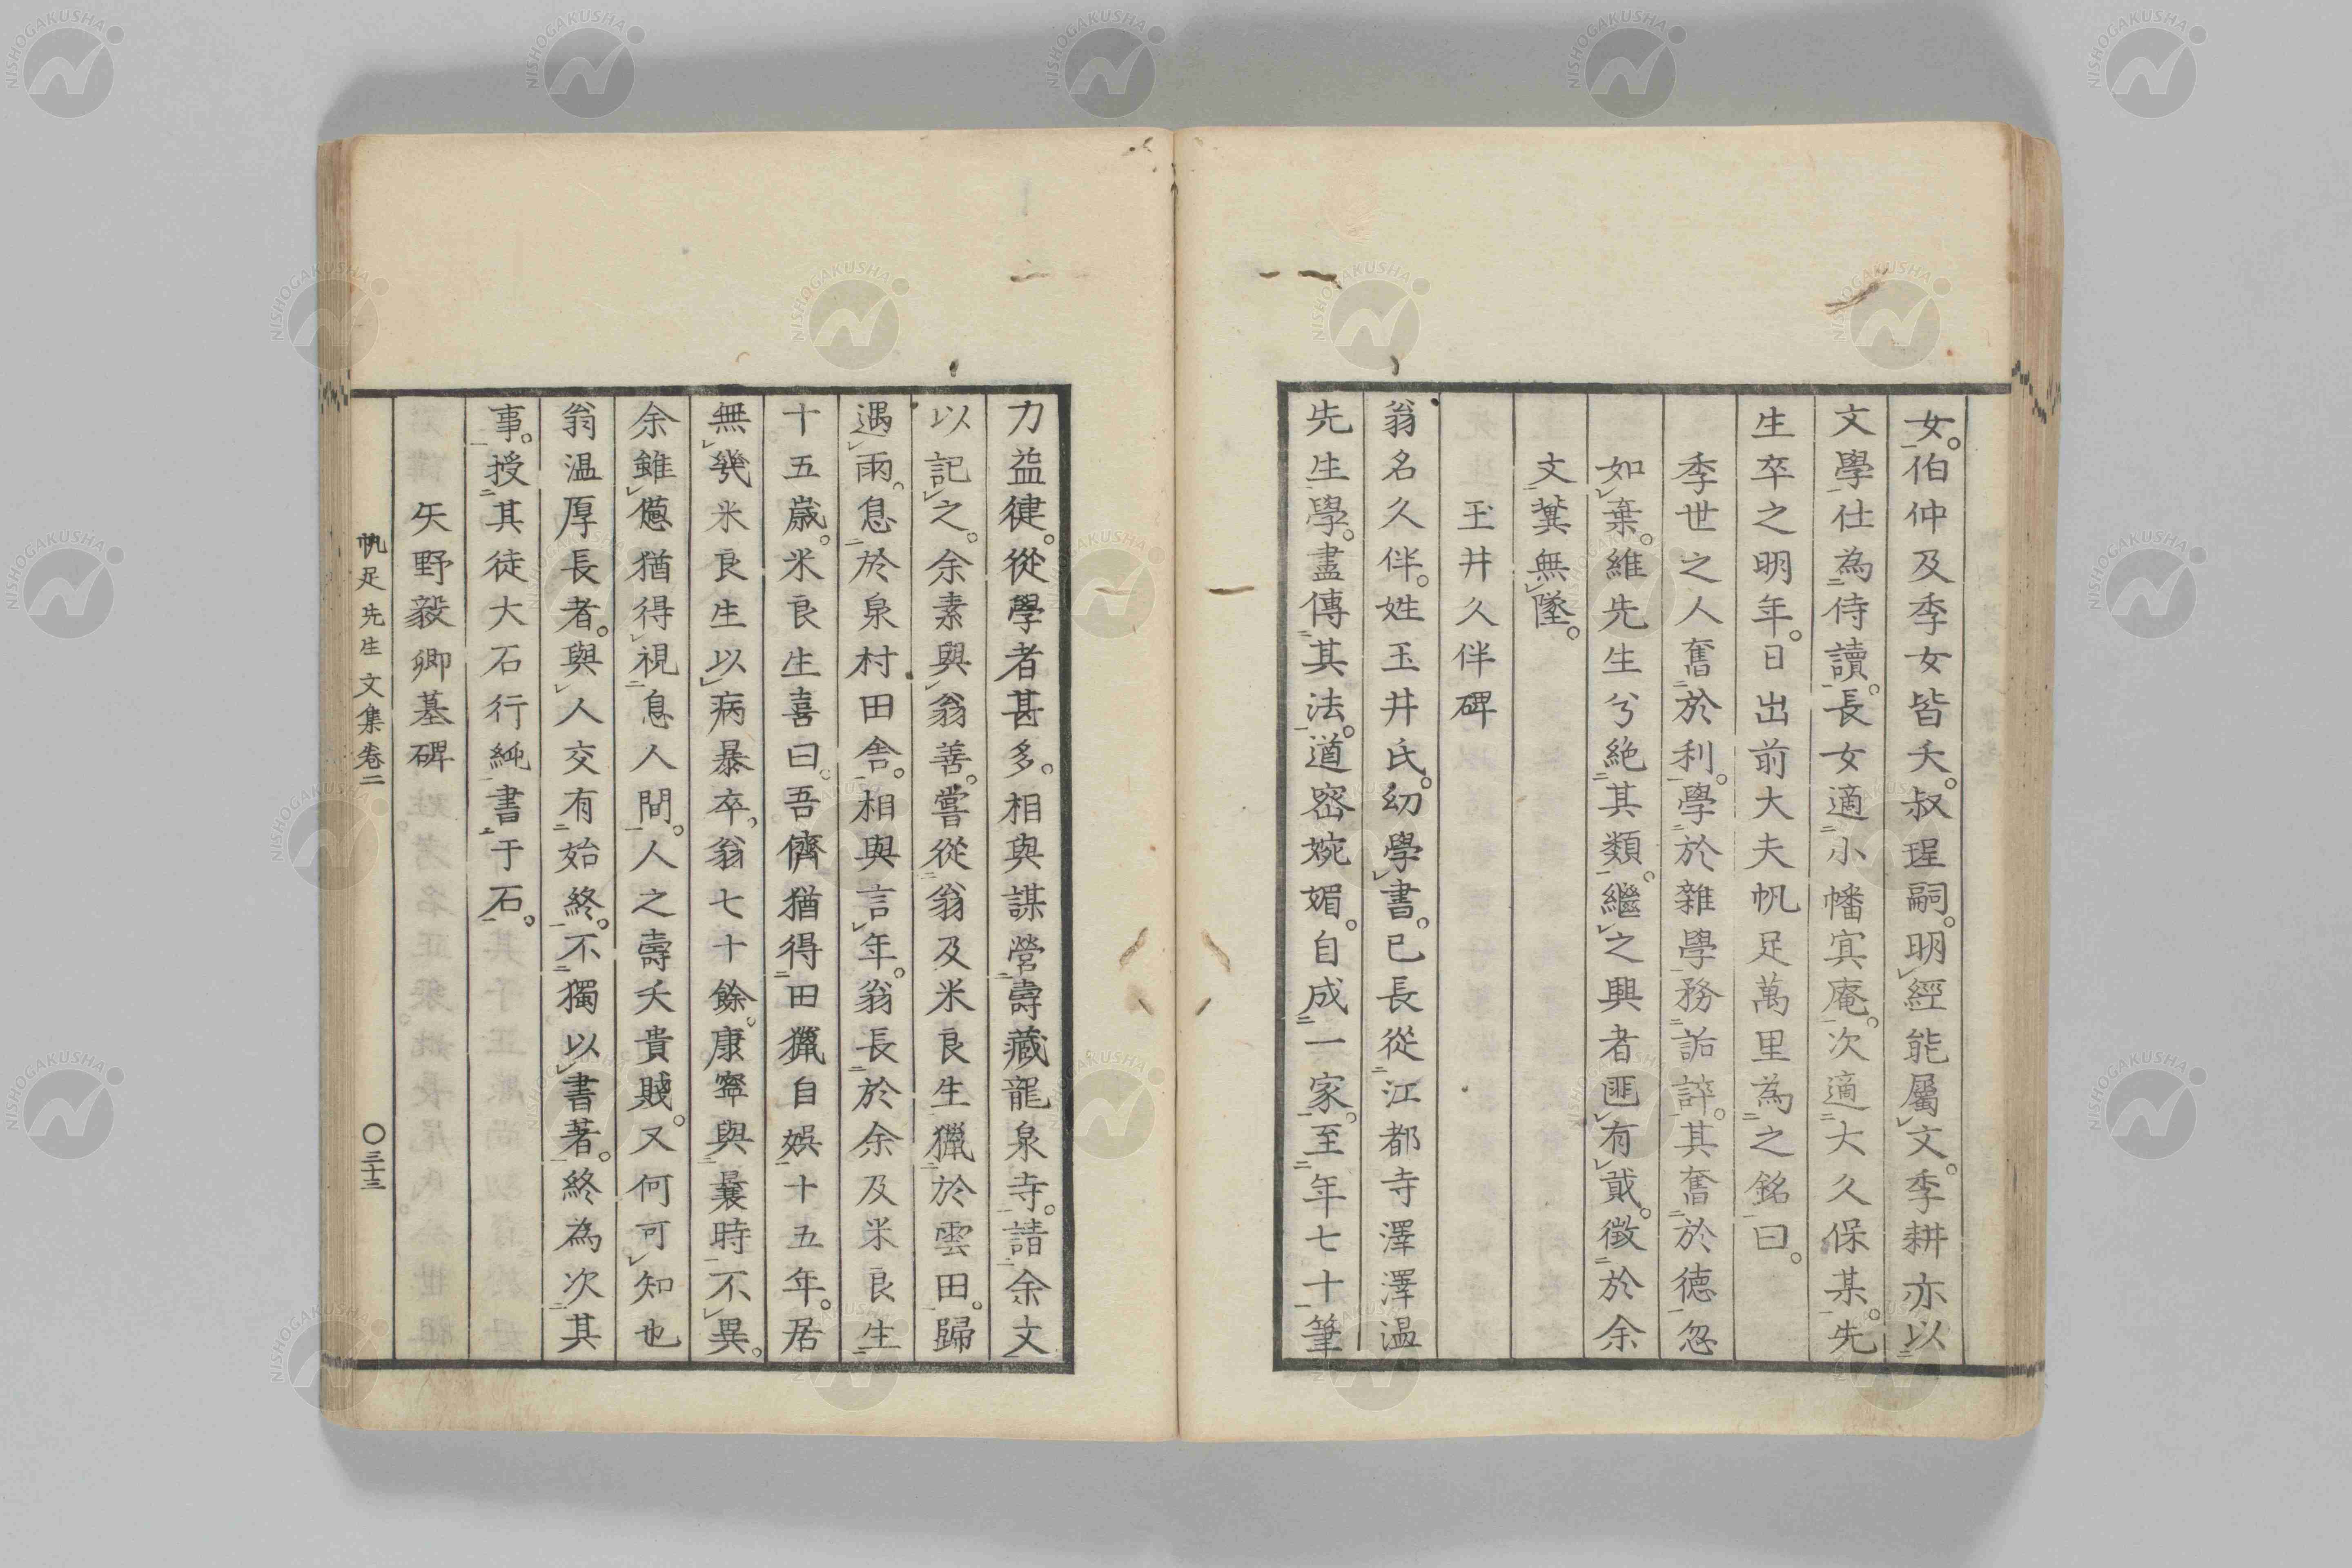 女。伯仲及季女皆夭。叔珵嗣。明經能屬文。季耕亦以
文學仕為侍讀。長女適小幡寅庵。次適大久保某。先
生卒之明年。日出前大夫帆足萬里為之銘曰。
季世之人奮於利。學於雜學務詬誶。其奮於德忽
如棄。維先生兮絶其類。繼之興者匪有貳。徵於余
文冀無墜。
玉井久伴碑
翁名久伴。姓玉井氏。幼學書。已長從江都寺澤澤温
先生學。盡傳其法。遒密婉媚。自成一家。至年七十筆
力益健。從學者甚多。相與謀營壽藏龍泉寺。請余文
以記之。余素與翁善。嘗從翁及米良生獵於雲田。歸
遇雨。息於泉村田舍。相與言年。翁長於余及米良生
十五歲。米良生喜曰。吾儕猶得田獵自娛十五年。居
無幾米良生以病暴卒。翁七十餘。康寧與曩時不異。
余雖憊猶得視息人間。人之壽夭貴賤。又何可知也
翁温厚長者。與人交有始終。不獨以書著。終為次其
事。授其徒大石行純書于石。
矢野毅卿墓碑
帆足先生文集卷二
〇三十三
NISHOGAKUSHA